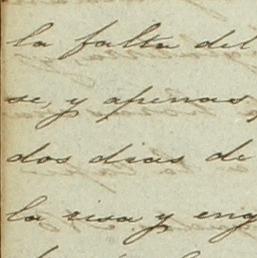 la falta del
se, y apenas,
dos dias de
la risa y eng